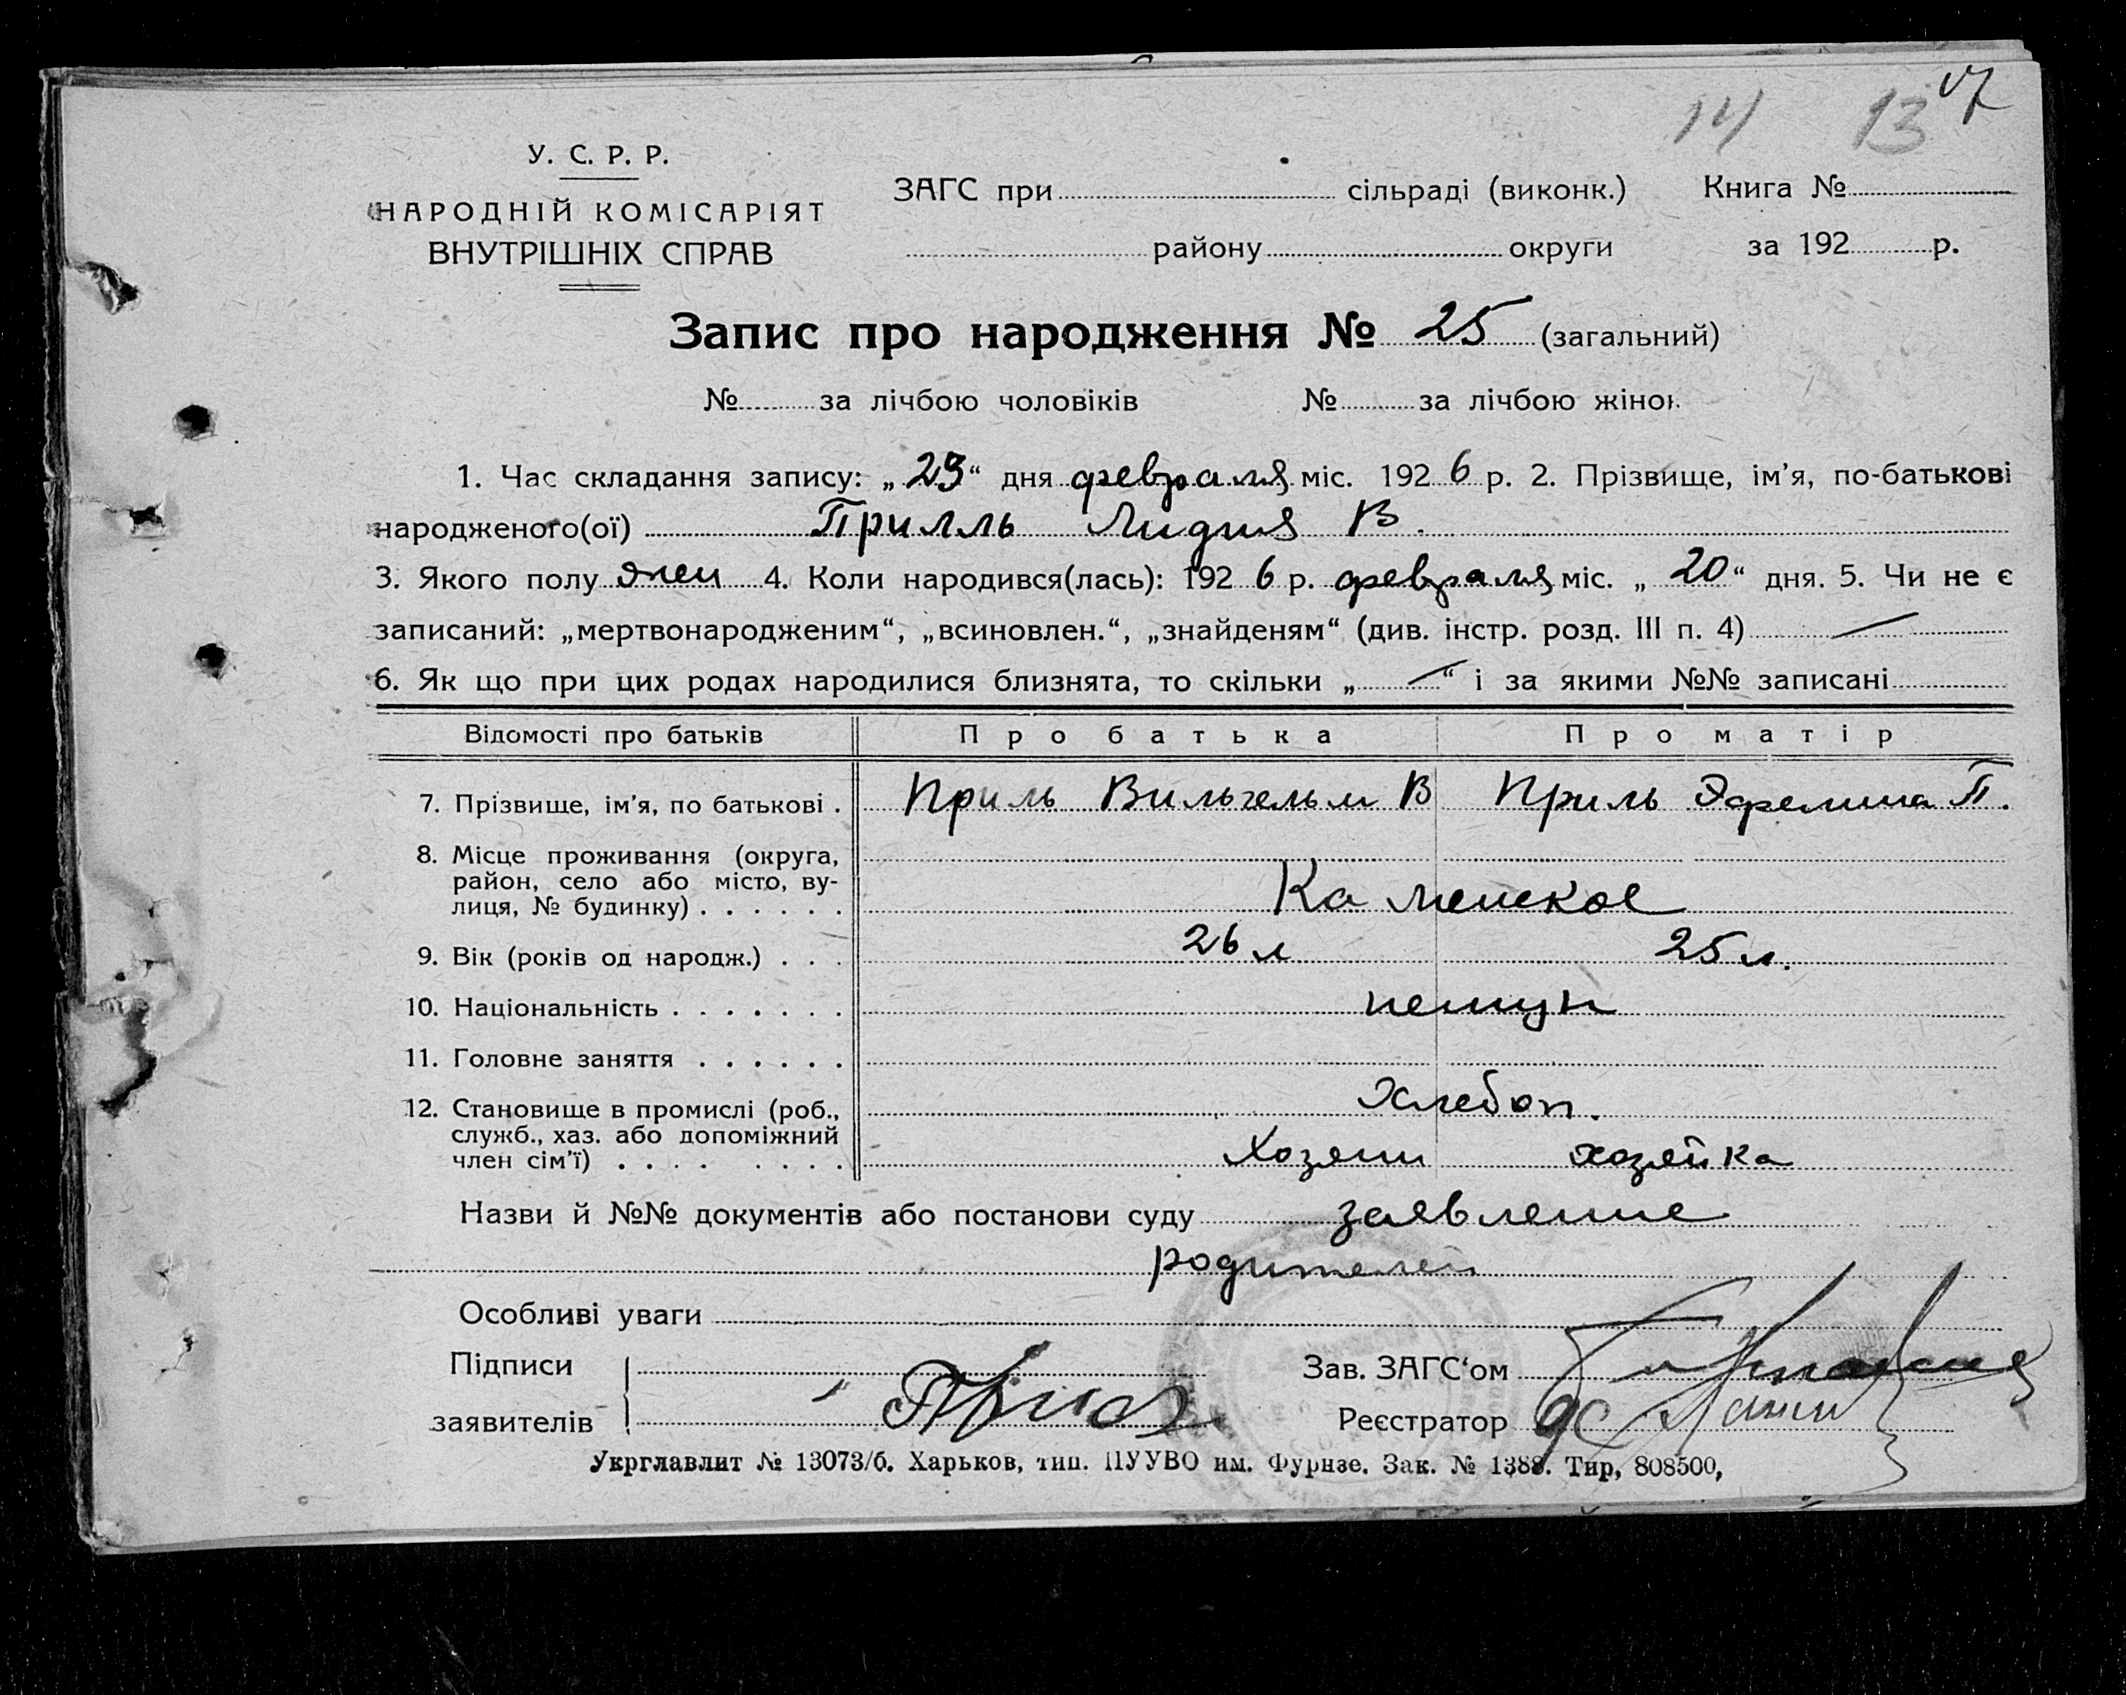 14 13 17
У. С. Р. Р.
НАРОДНІЙ КОМІСАРІЯТ
ВНУТРІШНІХ СПРАВ
ЗАГС при сільраді (виконк.) Книга №
району округи за 192 р.
Запис про народження № 25 (загальний)
№ за лічбою чоловіків № за лічбою жінок
1. Час складання запису: „23“ дня февраля міс. 1926 р. 2. Прізвище, ім’я, по-батькові
народженого(ої) Прилль Лидия В.
3. Якого полу жен 4. Коли народився(лась): 1926 р. февраля міс. „20“ дня. 5. Чи не є
записаний: „мертвонародженим“, „всиновлен.“, „знайденям“ (див. інстр. розд. III п. 4) —
6. Як що при цих родах народилися близнята, то скільки „—“ і за якими №№ записані
Відомості про батьків Про батька Про матір
7. Прізвище, ім’я, по батькові . Приль Вильгельм В Приль Эфелина П.
8. Місце проживання (округа,
район, село або місто, ву-
лиця, № будинку) . . . . . . Каменское
9. Вік (років од народж.) . . . 26 л 25 л.
10. Національність . . . . . . . немцы
11. Головне заняття . . . . . .
Хлебоп.
12. Становище в промислі (роб.,
служб., хаз. або допоміжний
член сім’ї) . . . . . . . . Хозяин хозяйка
Назви й №№ документів або постанови суду заявление
родителей
Особливі уваги
Підписи Зав. ЗАГС‘ом
заявителів Реєстратор
Укрглавлит № 13073/б. Харьков, тип. ПУУВО им. Фурнзе. Зак. № 1388. Тир, 808500,